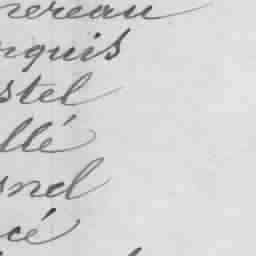 nereau
rquis
stel
llé
snel
cé